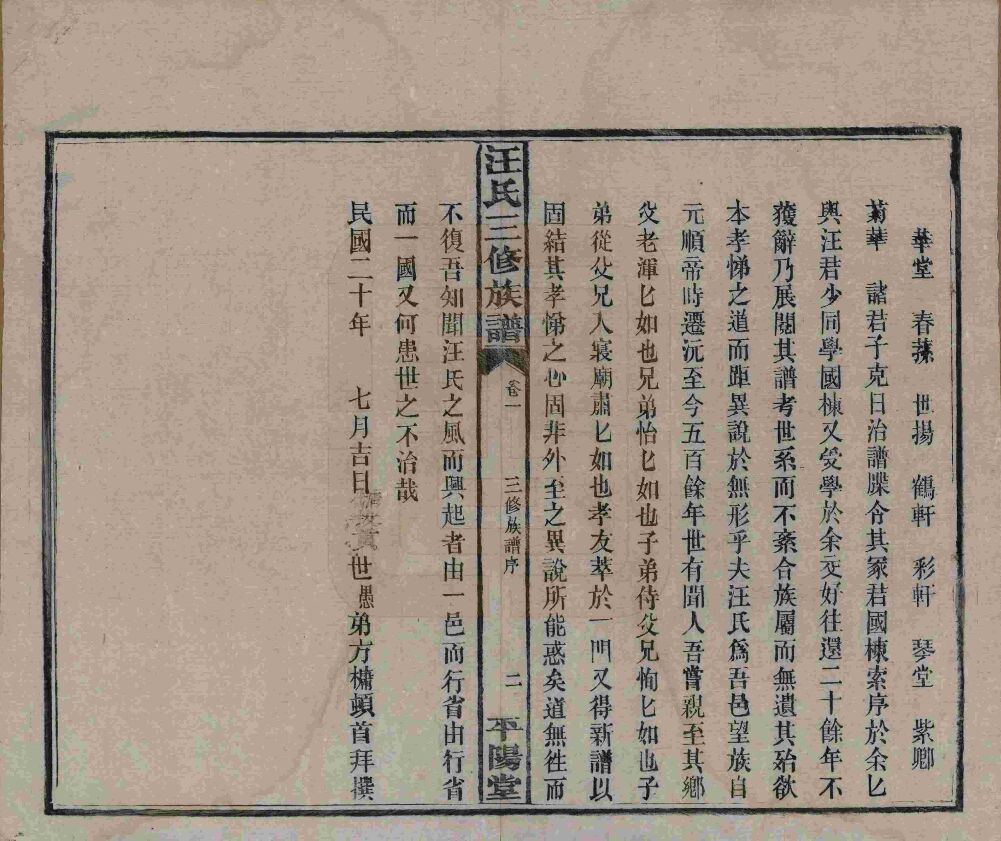 華堂 春蓀 世揚 鶴軒 彩軒 琴堂 紫鄉
菊華 諸君子克日治譜牒令其冢君國棟索序於余匕
與汪君少同學國棟又受學於余交好往還二十餘年不
獲辭乃展閱其譜考世系而不紊合族屬而無遺其殆欲
本孝悌之道而距異說於無形乎夫汪氏爲吾邑望族自
元順帝時遷沅至今五百餘年世有聞人吾嘗親至其鄉
父老渾匕如也兄弟怡匕如也子弟侍父兄恂匕如也子
弟從父兄入寢廟肅匕如也孝友萃於一門又得新譜以
固結其孝悌之心固非外至之異說所能惑矣道無徃而
汪氏三修族譜 卷一 三修族譜序 二 平陽堂
不復吾知聞汪氏之風而興起者由一邑而行省由行省
而一國又何患世之不治哉
民國二十年 七月吉日 世愚弟方櫹頓首拜撰